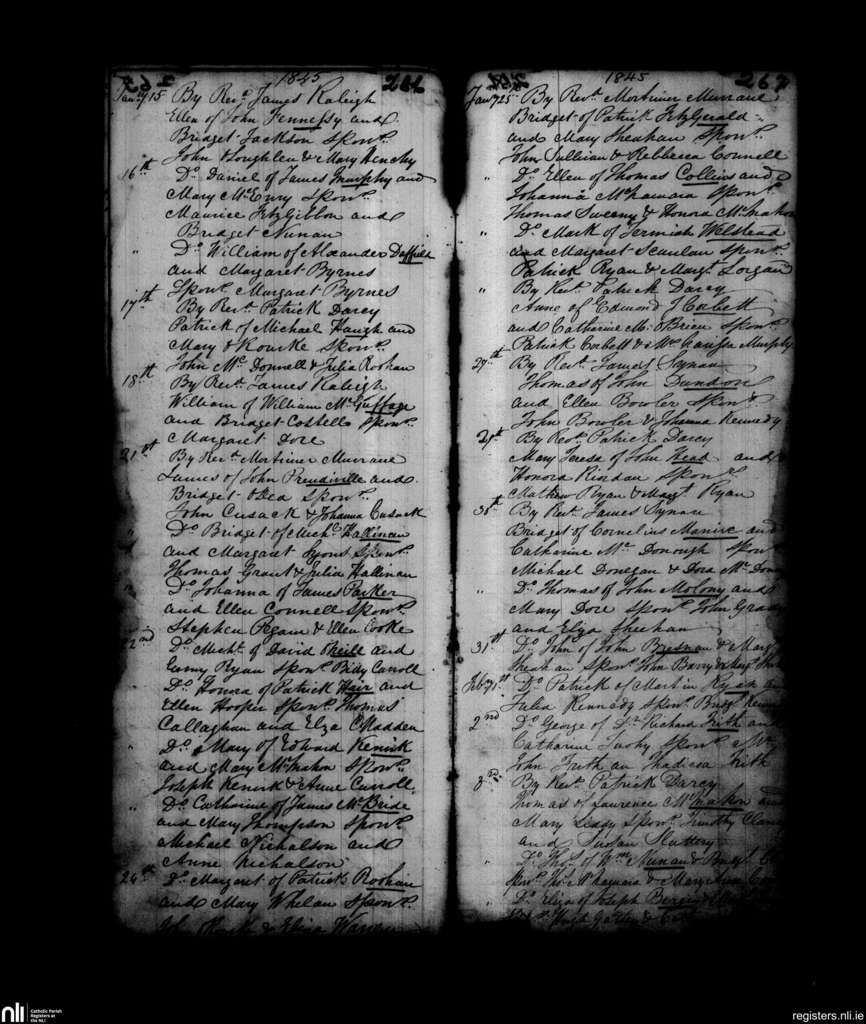 1845 266
Jany 15 By Revd James Raleigh
Ellen of John Fennessy and
Bridget Jackson Sponrs
John Loughlen & Mary Henchy
16th Do Daniel of James Murphy and
Mary McEnry Sponrs
Maurice FitzGibbon and
Bridget Nunan
" Do William of Alexander Duffield
and Margaret Byrnes
Sponr Margaret Byrnes
17th By Revd Patrick Darcy
Patrick of Michael Haugh and
Mary O'Rourke Sponrs
John McDonnell & Julia Roohan
18th By Revd James Raleigh
William of William McGuffage
and Bridget Costello Sponr
Margaret Dore
21st By Revd Mortimer Murrane
James of John Prendiville and
Bridget Sponrs
John Cusack & Johanna Cusack
Do Bridget of Michl Hallinan
and Margaret Lyons Sponrs
Thomas Grant & Julia Hallinan
Do Johanna of James Parker
and Ellen Connell Sponrs
Stephen & Ellen Cooke
22nd Do Michl of David and
Ryan Sponr Bidy Carroll
Do Honora of Patrick Hair and
Ellen Hooper Sponrs Thomas
Callaghan and Elza Madden
" Do Mary of Edward Kenrick
and Mary McMahon Sponrs
Joseph Kenrick & Anne Carroll
" Do Catharine of James McBride
and Mary Thompson Sponrs
Michael Nicholson and
Anne Nicholson
24th Do Margaret of Patrick Roohan
and Mary Whelan Sponrs
1845 267
Jany 25 By Revd Mortimer Murrane
Bridget of Patrick FitzGerald
and Mary Sheahan Sponrs
John Sullivan & Rebbecca Connell
" Do Ellen of Thomas Collins and
Johanna McNamara Sponrs
Thomas Sweeny & Honora McMahon
" Do Mark of Jermiah Welstead
and Margaret Scanlan Sponrs
Patrick Ryan & Margt
" By Revd Patrick Darcy
Anne of Edmond Corbett
and Catharine M. O'Brien Sponrs
Patrick Corbett & Murphy
27th By Revd James Synan
Thomas of John Dundon
and Ellen Bowler Sponrs
John Bowler & Johanna Kennedy
29th By Revd Patrick Darcy
Mary Teresa of John Head and
Honora Riordan Sponrs
Mathew Ryan & Margt Ryan
30th By Revd James Synan
Bridget of Cornelius and
Catharine McDonough Sponrs
Michael Donegan & Dora
" Do Thomas of John Molony and
Mary Dore Sponrs John
and Elza Sheehan
31st Do John of John Bresnan &
Sheehan Sponrs John Barry &
Feby 1st Do Patrick of Martin Ryan
Julia Kennedy Sponr
2nd Do George of Dr Richard Frith and
Catharine Sponrs
John Frith an Thadiesa Frith
3rd By Revd Patrick Darcy
Thomas of Laurence McMahon and
Mary Sponrs Timothy
and Susan Slattery
" Do Thos of Wm Nunan &
Sponrs & Mary
Do Eliza of Joseph
nli Catholic Parish
Registers at
the NLI
registers.nli.ie